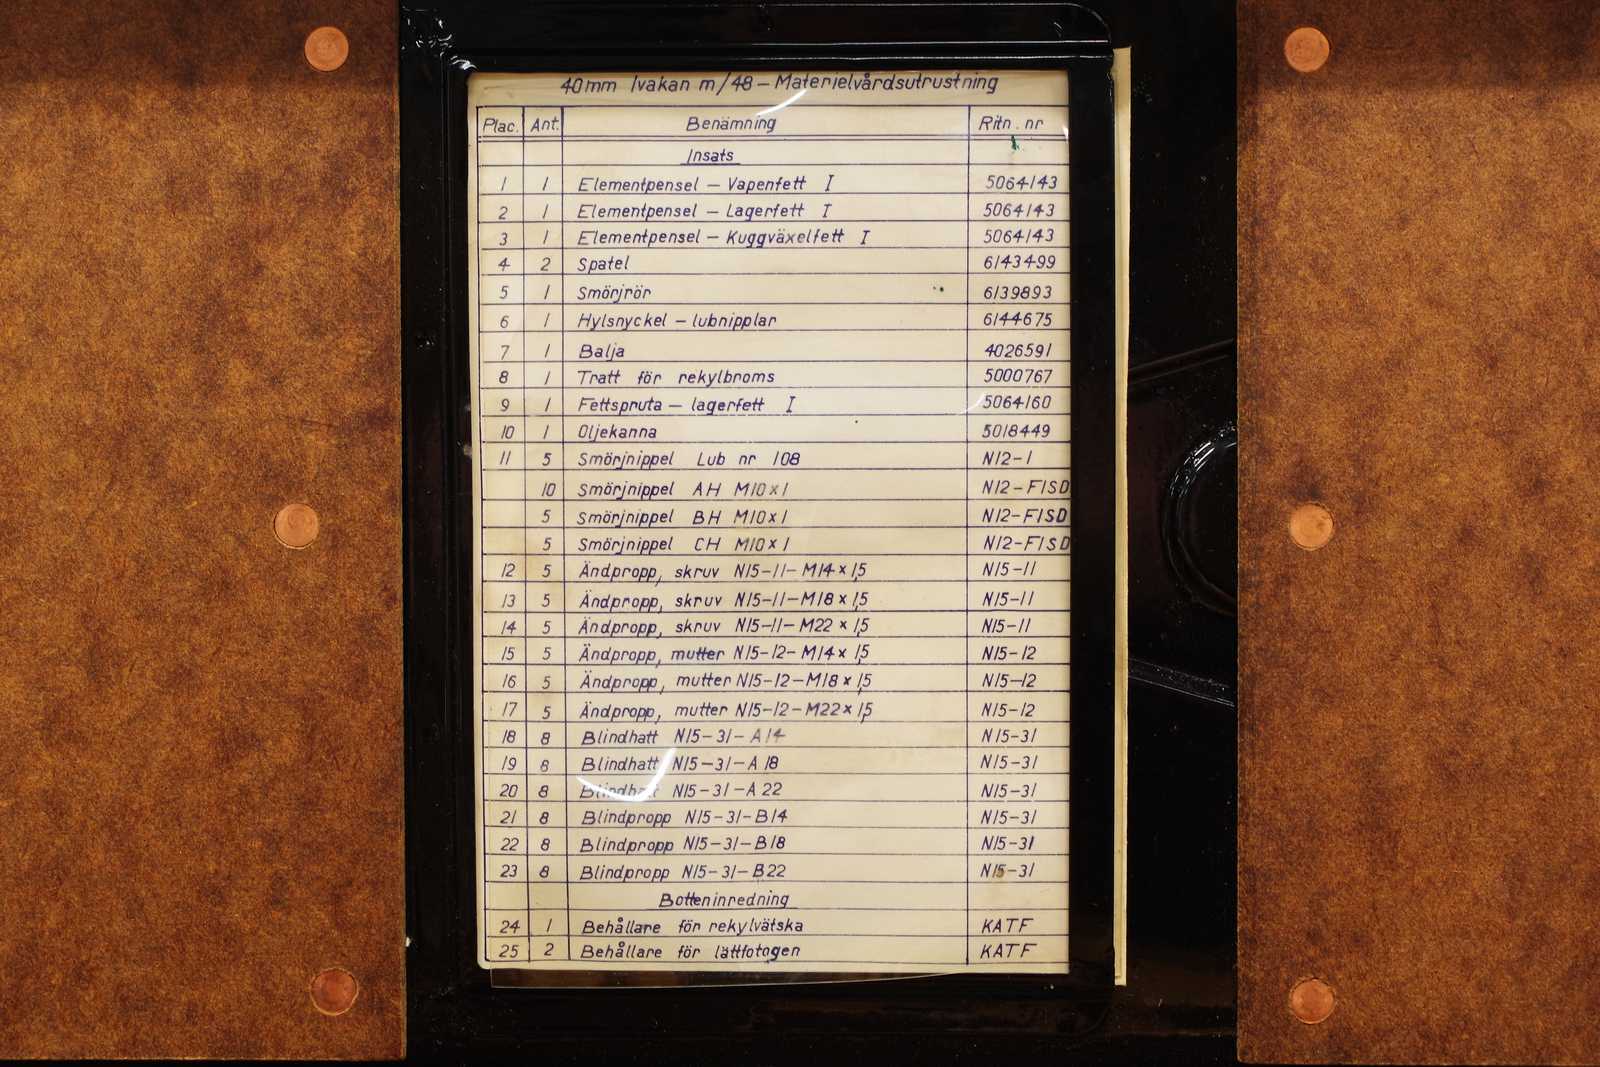 40mm lvakan m/48 – Materielvårdsutrustning
Plac. Ant. Benämning Ritn. nr
Insats
1 1 Elementpensel – Vapenfett I 5064143
2 1 Elementpensel – Lagerfett I 5064143
3 1 Elementpensel – Kuggväxelfett I 5064143
4 2 Spatel 6143499
5 1 Smörjrör 6139893
6 1 Hylsnyckel – lubnipplar 6144675
7 1 Balja 4026591
8 1 Tratt för rekylbroms 5000767
9 1 Fettspruta – lagerfett I 5064160
10 1 Oljekanna 5018449
11 5 Smörjnippel Lub nr 108 N12-1
10 Smörjnippel AH M10x1 N12-F1SD
5 Smörjnippel BH M10x1 N12-F1SD
5 Smörjnippel CH M10x1 N12-F1SD
12 5 Ändpropp, skruv N15-11-M14x1,5 N15-11
13 5 Ändpropp, skruv N15-11-M18x1,5 N15-11
14 5 Ändpropp, skruv N15-11-M22x1,5 N15-11
15 5 Ändpropp, mutter N15-12-M14x1,5 N15-12
16 5 Ändpropp, mutter N15-12-M18x1,5 N15-12
17 5 Ändpropp, mutter N15-12-M22x1,5 N15-12
18 8 Blindhatt N15-31-A14 N15-31
19 8 Blindhatt N15-31-A18 N15-31
20 8 Blindhatt N15-31-A22 N15-31
21 8 Blindpropp N15-31-B14 N15-31
22 8 Blindpropp N15-31-B18 N15-31
23 8 Blindpropp N15-31-B22 N15-31
Botteninredning
24 1 Behållare för rekylvätska KATF
25 2 Behållare för lättfotogen KATF